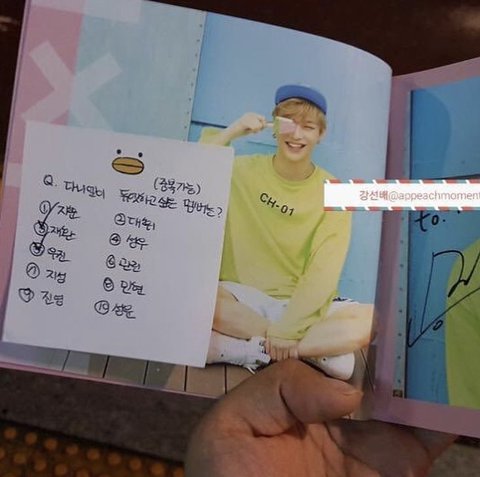 (중복가능)
Q. 다니엘이 듀엣하고싶은 멤버는?
① 지훈 ② 대휘
③ 재환 ④ 성우
⑤ 우진 ⑥ 관린
⑦ 지성 ⑧ 민현
⑨ 진영 ⑩ 성운
CH-01
강선배@appeachmoment
to.